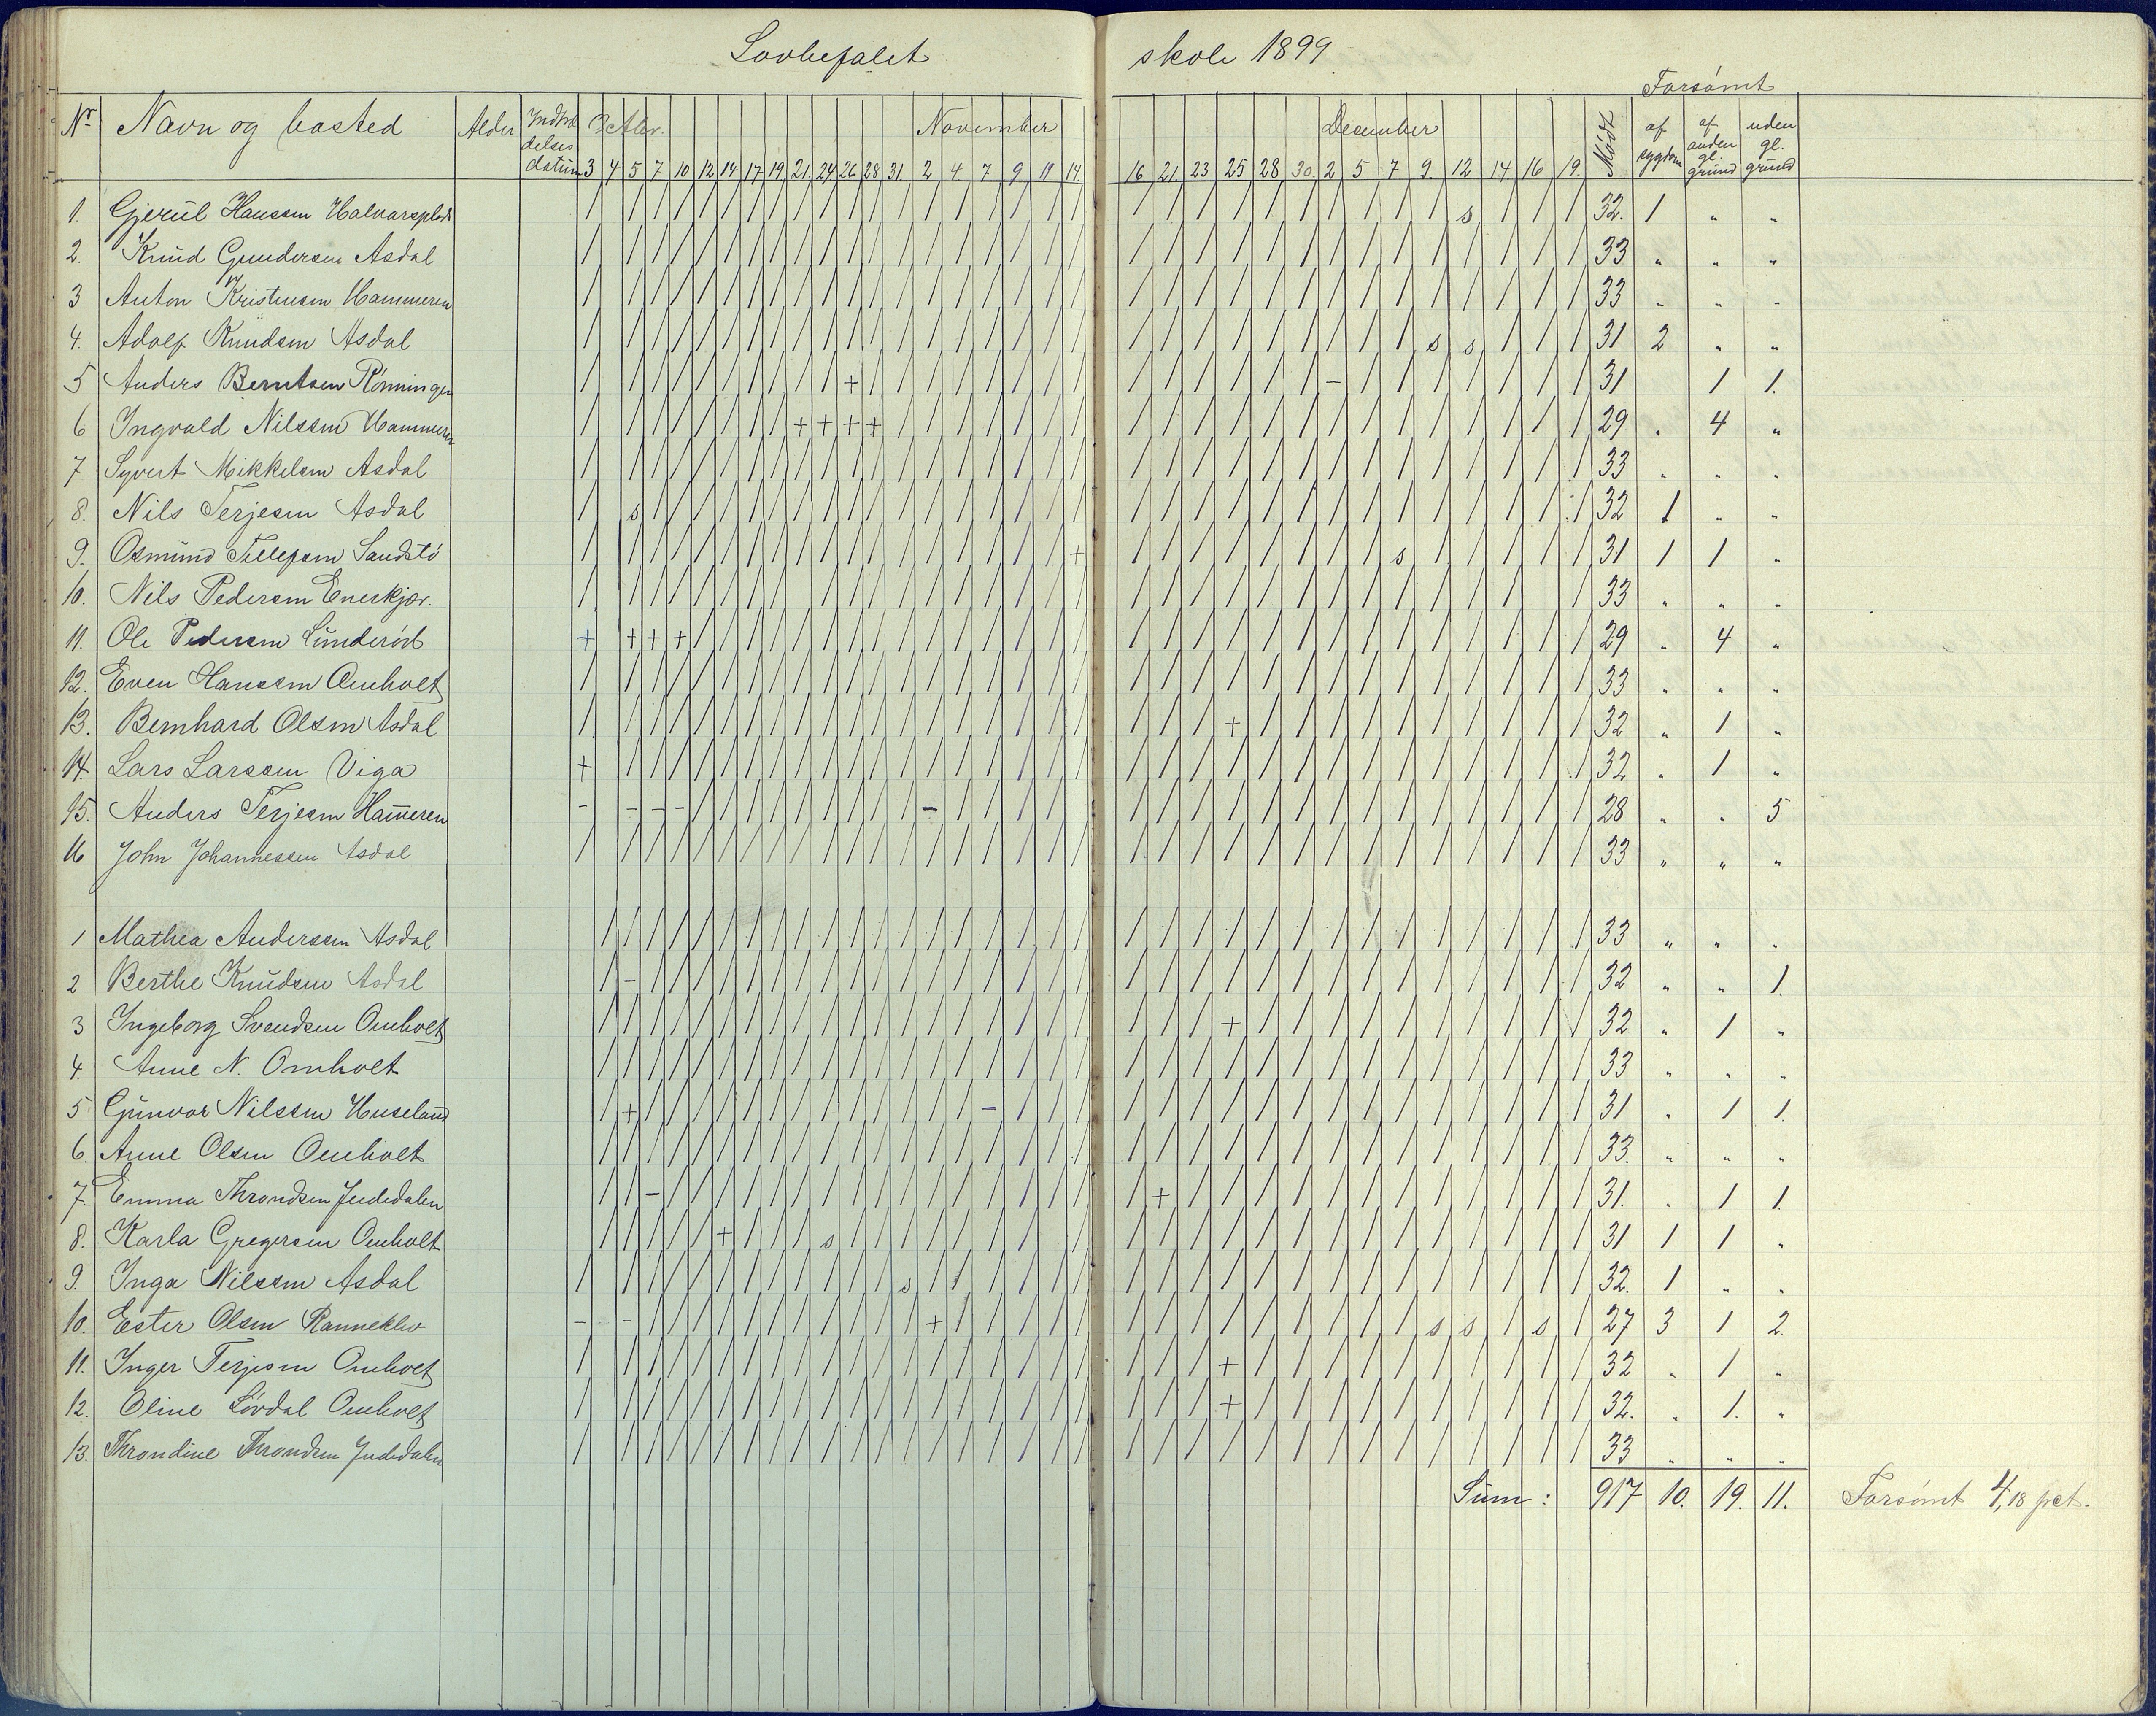 Lovbefalet skole 1899
Forsømt
Nr Navn og bosted Alder Indtrædelsesdatum 3 Aktbr. November December Mødt af sygdom af anden gl. grund uden gl. grund
3 4 5 7 10 12 14 17 19 21 24 26 28 31 2 4 7 9 11 14 16 21 23 25 28 30 2 5 7 9 12 14 16 19
1. Gjerul Hanssen / / / / / / / / / / / / / / / / / / / / / / / / / / / / s / / / 32. 1 " "
2. Knud Gundersen Asdal 33 " " "
3 Anton Kristensen Hammeren 33 " " "
4. Adolf Knudsen Asdal s s 31 2 " "
5 Anders Berntsen Rønningen + - 31 1 1.
6 Ingvald Nilssen Hammeren + + + + 29 " 4 "
7 Syvert Mikkelsen Asdal 33 " " "
8. Nils Terjesen Asdal s 32 1 " "
9. Osmund Tellefsen Sandstø + s 31 1 1 "
10. Nils Pedersen Enerkjær. 33 " " "
11. Ole Pedersen Lunderød + + + + 29 " 4 "
12. Even Hanssen Omholt 33 " " "
13. Bernhard Olsen Asdal + 32 " 1 "
14. Lars Larssen Viga + 32 " 1 "
15. Anders Terjesen Ham̄eren - - - - - 28 " " 5
16 John Johannessen Asdal 33 " " "
1 Mathea Anderssen Asdal 33 " " "
2 Berthe Knudsen Asdal - 32 " " 1.
3 Ingeborg Svendsen Omholt + 32 " 1 "
4. Anne N. Omholt 33 " " "
5 Gunvor Nilssen Huseland + - 31 " 1 1.
6. Anne Olsen Omholt 33. " " "
7. Emma Throndsen Jndedalen - + 31. " 1 1.
8. Karla Gregersen Omholt + s 31 1 1 "
9. Inga Nilssen Asdal s 32. 1 " "
10. Ester Olsen Ranneklev - - + s s s 27 3 1 2.
11. Inger Terjesen Omholt + 32 " 1 "
12. Oline Løvdal Omholt + 32. " 1. "
13. Throndine Throndsen Jndedalen 33 " " "
Sum: 917 10. 19. 11. Forsømt 4,18 pct.